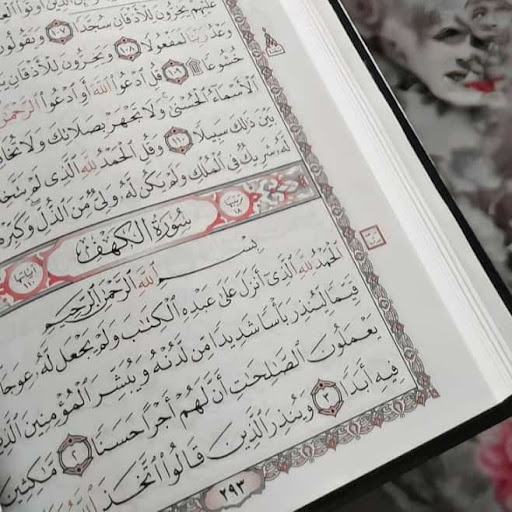 عَلَيْهِمْ يَخِرُّونَ لِلْأَذْقَانِ سُجَّدًا ١٠٧ وَيَقُولُونَ
وَعْدُ رَبِّنَا لَمَفْعُولًا ١٠٨ وَيَخِرُّونَ لِلْأَذْقَانِ
خُشُوعًا ١٠٩ قُلِ ادْعُوا اللَّهَ أَوِ ادْعُوا الرَّحْمَٰنَ
الْأَسْمَاءُ الْحُسْنَىٰ وَلَا تَجْهَرْ بِصَلَاتِكَ وَلَا
بَيْنَ ذَٰلِكَ سَبِيلًا ١١٠ وَقُلِ الْحَمْدُ لِلَّهِ الَّذِي لَمْ
لَهُ شَرِيكٌ فِي الْمُلْكِ وَلَمْ يَكُنْ لَهُ وَلِيٌّ مِنَ الذُّلِّ وَكَبِّرْهُ
سُورَةُ الْكَهْفِ
بِسْمِ اللَّهِ الرَّحْمَٰنِ الرَّحِيمِ
الْحَمْدُ لِلَّهِ الَّذِي أَنْزَلَ عَلَىٰ عَبْدِهِ الْكِتَابَ وَلَمْ يَجْعَلْ لَهُ عِوَجًا
قَيِّمًا لِيُنْذِرَ بَأْسًا شَدِيدًا مِنْ لَدُنْهُ وَيُبَشِّرَ الْمُؤْمِنِينَ الَّذِينَ
يَعْمَلُونَ الصَّالِحَاتِ أَنَّ لَهُمْ أَجْرًا حَسَنًا ٢ مَاكِثِينَ
فِيهِ أَبَدًا ٣ وَيُنْذِرَ الَّذِينَ قَالُوا اتَّخَذَ اللَّهُ
٢٩٣